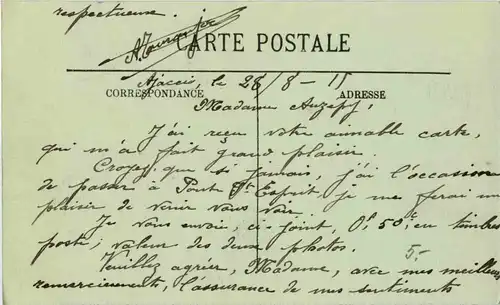 respectueuse.
CARTE POSTALE
Ajaccio, le 28/8-15
CORRESPONDANCE
ADRESSE
Madame
J'ai reçu votre aimable carte,
qui m'a fait grand plaisir.
Croyez que si jamais, j'ai l'occasion
de passer à Pont St Esprit, je me ferai un
plaisir de venir vous voir.
Je vous envoie, ci-joint, 0f 50c en timbres
poste, valeur des deux photos.
5,-
Veuillez agréer, Madame, avec mes meilleurs
remerciements, l'assurance de mes sentiments